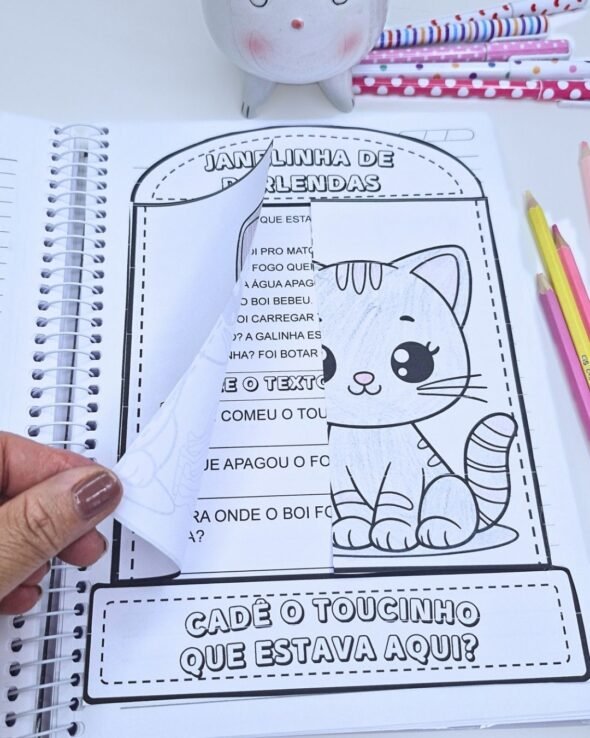 JANELINHA DE
PARLENDAS
QUE ESTA
OI PRO MATO
FOGO QUEI
A ÁGUA APAG
O BOI BEBEU.
OI CARREGAR
O? A GALINHA ES
NHA? FOI BOTAR
E O TEXTO
COMEU O TOU
UE APAGOU O FO
RA ONDE O BOI FO
A?
CADÊ O TOUCINHO
QUE ESTAVA AQUI?